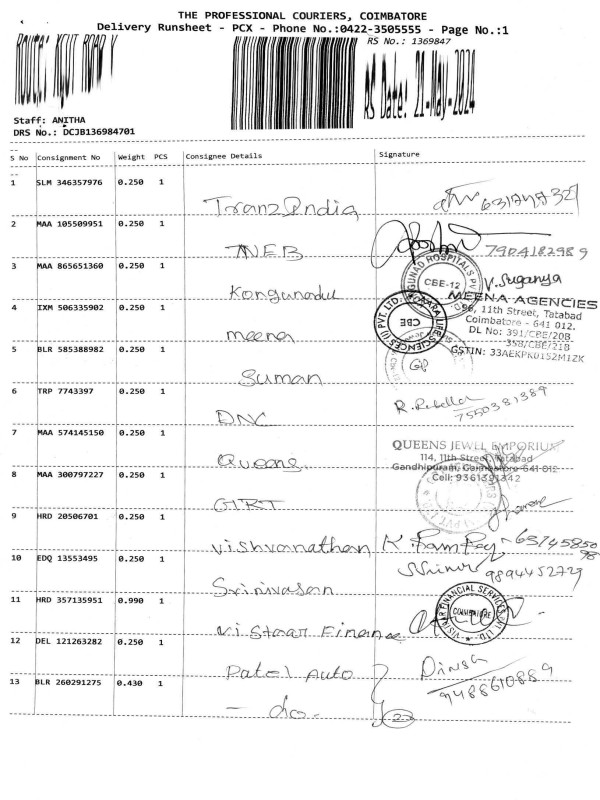 THE PROFESSIONAL COURIERS, COIMBATORE
Delivery Runsheet - PCX - Phone No.:0422-3505555 - Page No.:1
RS No.: 1369847
RS Date: 21-May-2024
Staff: ANITHA
DRS No.: DCJB136984701
S No Consignment No Weight PCS Consignee Details Signature
1 SLM 346357976 0.250 1 Tranz India
2 MAA 105509951 0.250 1 TNEB 7904182989
3 MAA 865651360 0.250 1 Kongunadu V. Suganya
CBE-12
MEENA AGENCIES
96, 11th Street, Tatabad
Coimbatore - 641 012.
DL No: 391/CBE/20B
358/CBE/21B
GSTIN: 33AEKPK0152M1ZK
4 IXM 506335902 0.250 1 meena
CBE
5 BLR 585388982 0.250 1 Suman
6 TRP 7743397 0.250 1 DNC R. Rebella 7550381389
7 MAA 574145150 0.250 1 Queens
QUEENS JEWEL EMPORIUM
114, 11th Street, Tatabad
Gandhipuram, Coimbatore-641 012
Cell: 9361391342
8 MAA 300797227 0.250 1 GTRT
9 HRD 20506701 0.250 1 Vishvanathan
10 EDQ 13553495 0.250 1 Srinivasan 9894452729
11 HRD 357135951 0.990 1 Vi Staar Finance
VISTAR FINANCIAL SERVICES PVT. LTD.
COIMBATORE
12 DEL 121263282 0.250 1 Patel Auto Dinsa
9488610889
13 BLR 260291275 0.430 1 - do. - 22